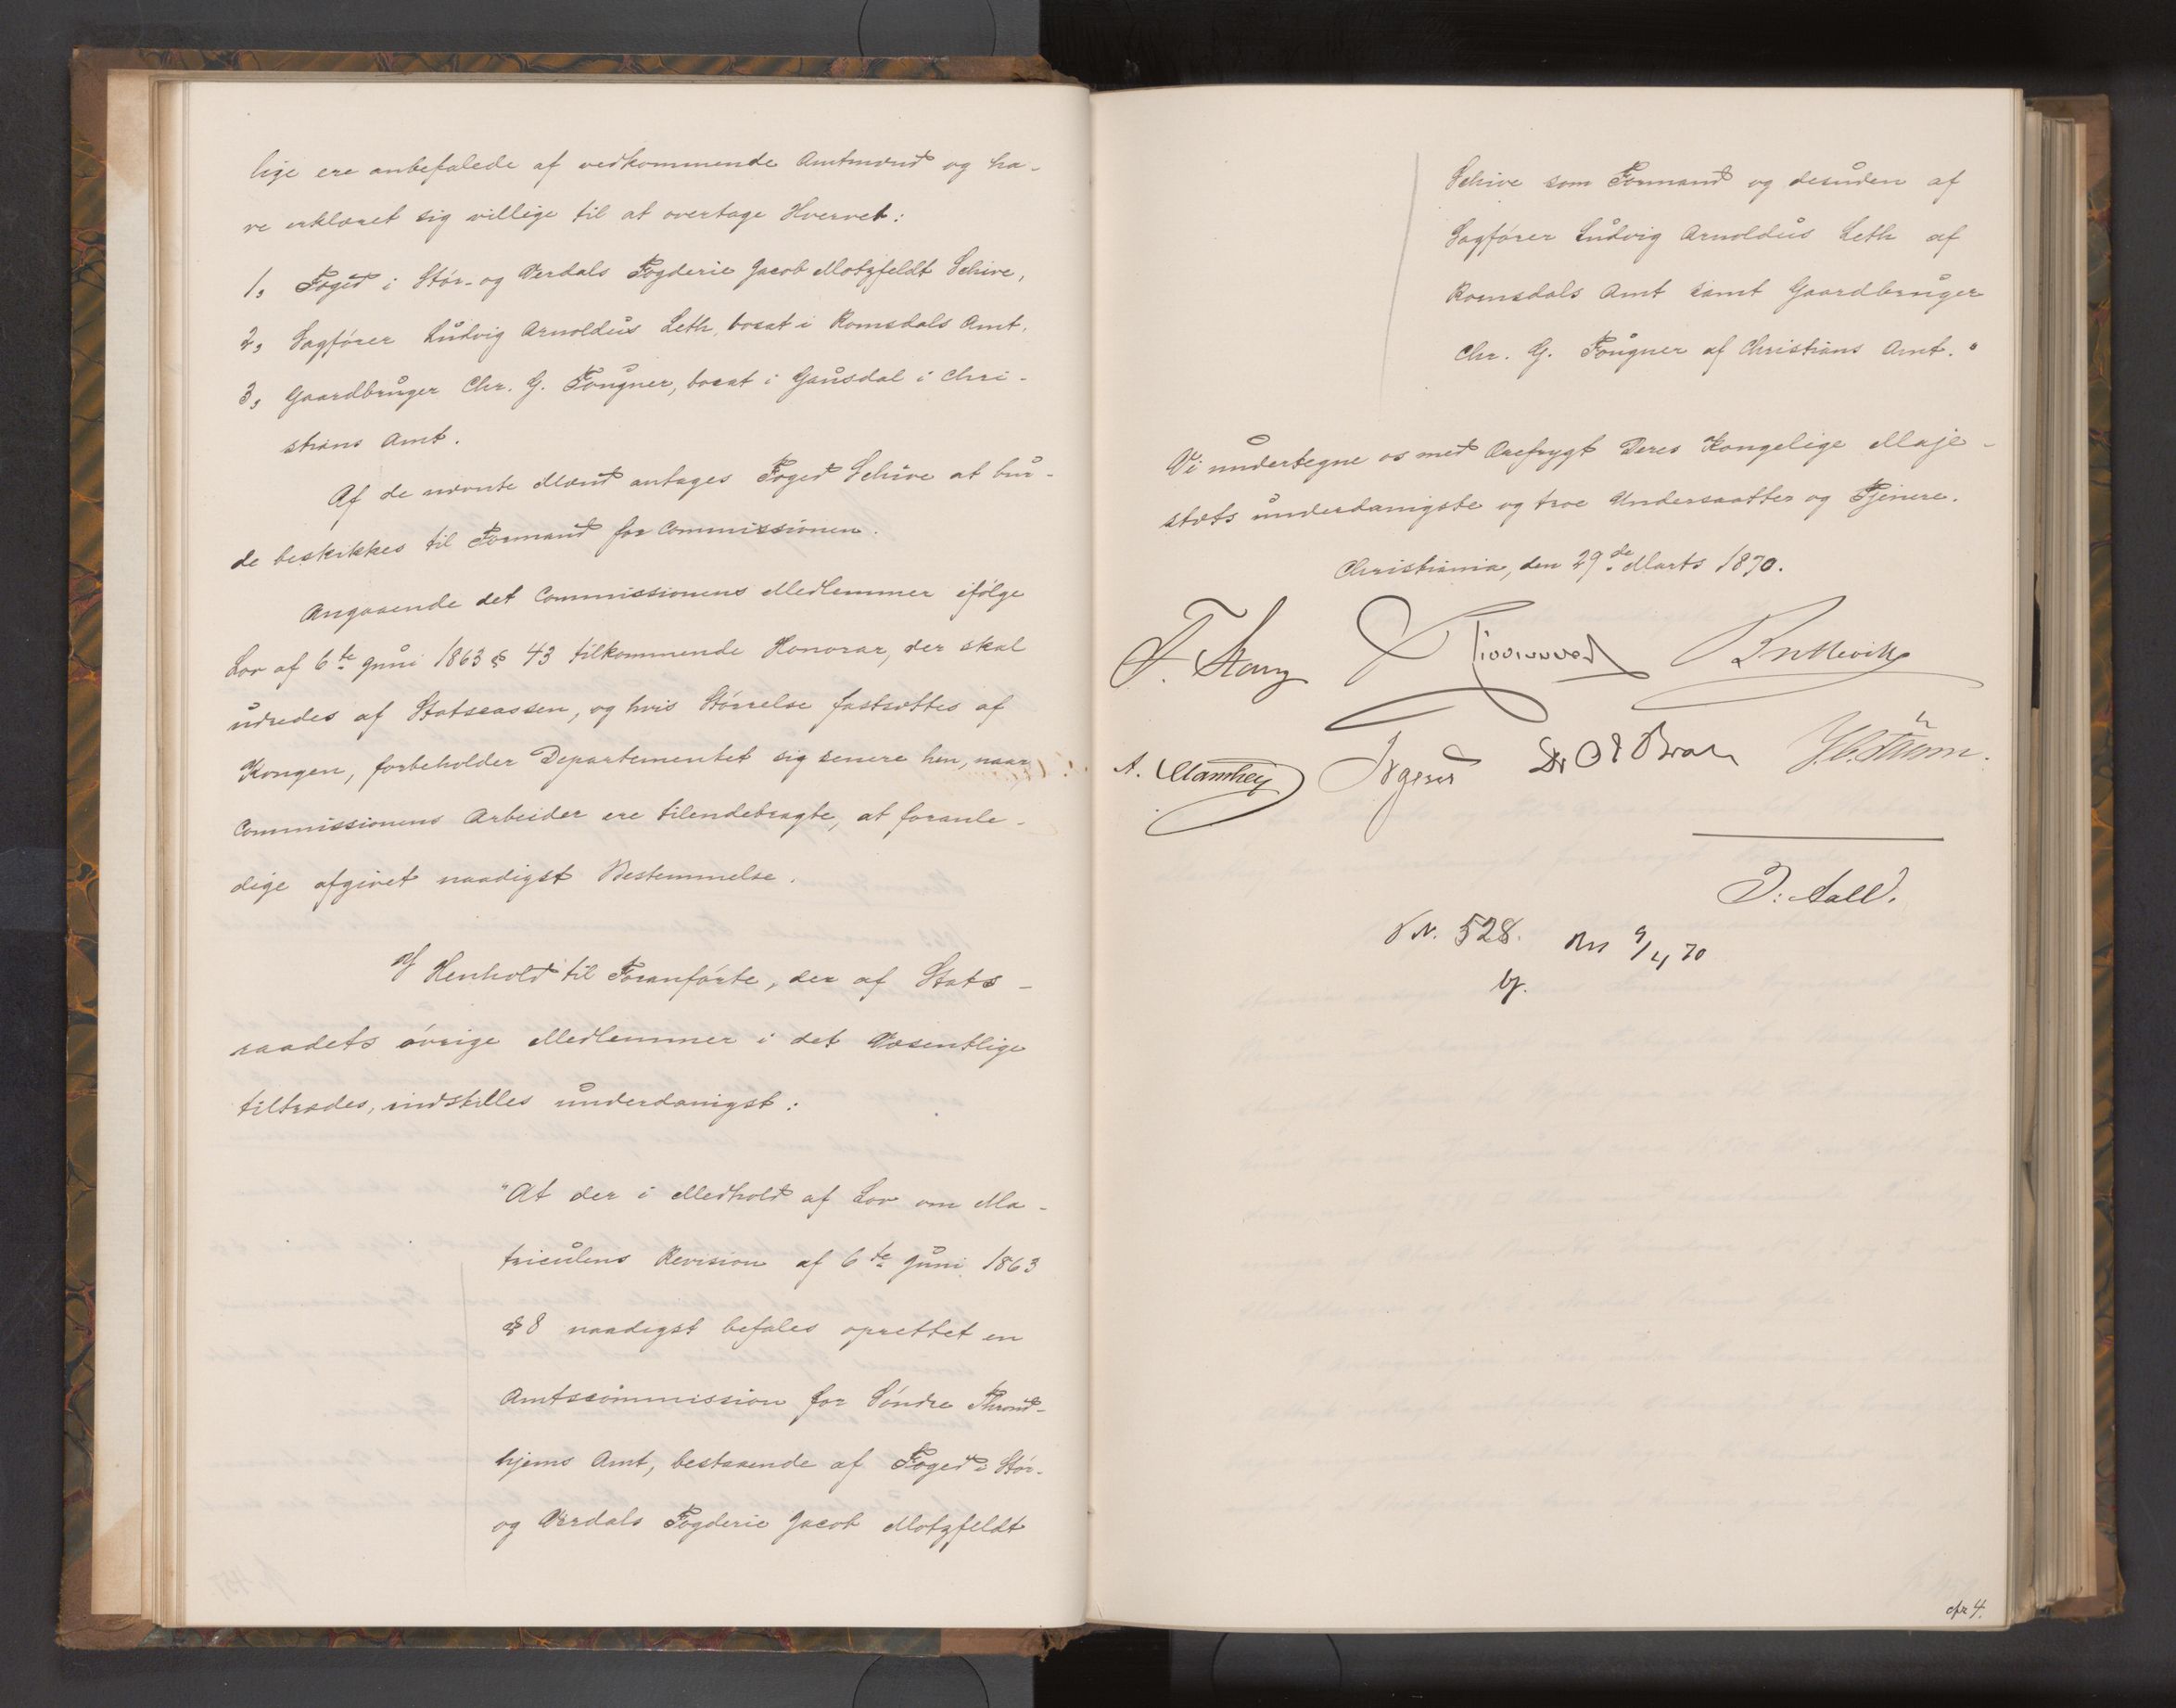 lige ere anbefalede af vedkommende Amtmænd og ha-
ve erklæret sig villige til at overtage Hvervet:
1, Foged i Stør- og Værdals Fogderie Jacob Motzfeldt Schive,
2, Sagfører Ludvig Arnoldus Leth, bosat i Romsdals Amt,
3, Gaardbruger Chr. G. Fougner, bosat i Gausdal i Chri-
stians Amt.
Af de nævnte Mænd antages Foged Schive at bur-
de beskikkes til Formand for Commissionen.
Angaaende det Commissionens Medlemmer ifølge
Lov af 6te Juni 1863 § 43 tilkommende Honorar, der skal
udredes af Statscassen, og hvis Størrelse fastsættes af
Kongen, forbeholder Departementet sig senere hen, naar
Commissionens Arbeider ere tilendebragte, at foranle-
dige afgivet naadigst Bestemmelse.
I Henhold til Foranførte, der af Stats-
raadets øvrige Medlemmer i det Væsentlige
tiltrædes, indstilles underdanigst:
"At der i Medhold af Lov om Ma-
triculens Revision af 6te Juni 1863
§ 8 naadigst befales oprettet en
Amtscommission for Søndre Thrond-
hjems Amt, bestaaende af Foged i Stør-
og Værdals Fogderie Jacob Motzfeldt
Schive som Formand og desuden af
Sagfører Ludvig Arnoldus Leth af
Romsdals Amt samt Gaardbruger
Chr. G. Fougner af Christians Amt."
Vi undertegne os med Ærefrygt Deres Kongelige Maje-
stæts underdanigste og troe Undersaatter og Tjenere.
Christiania, den 29de Marts 1870.
F. Stang
A. Manthey Irgens
J: Aall.
N. 528. 9/4 70